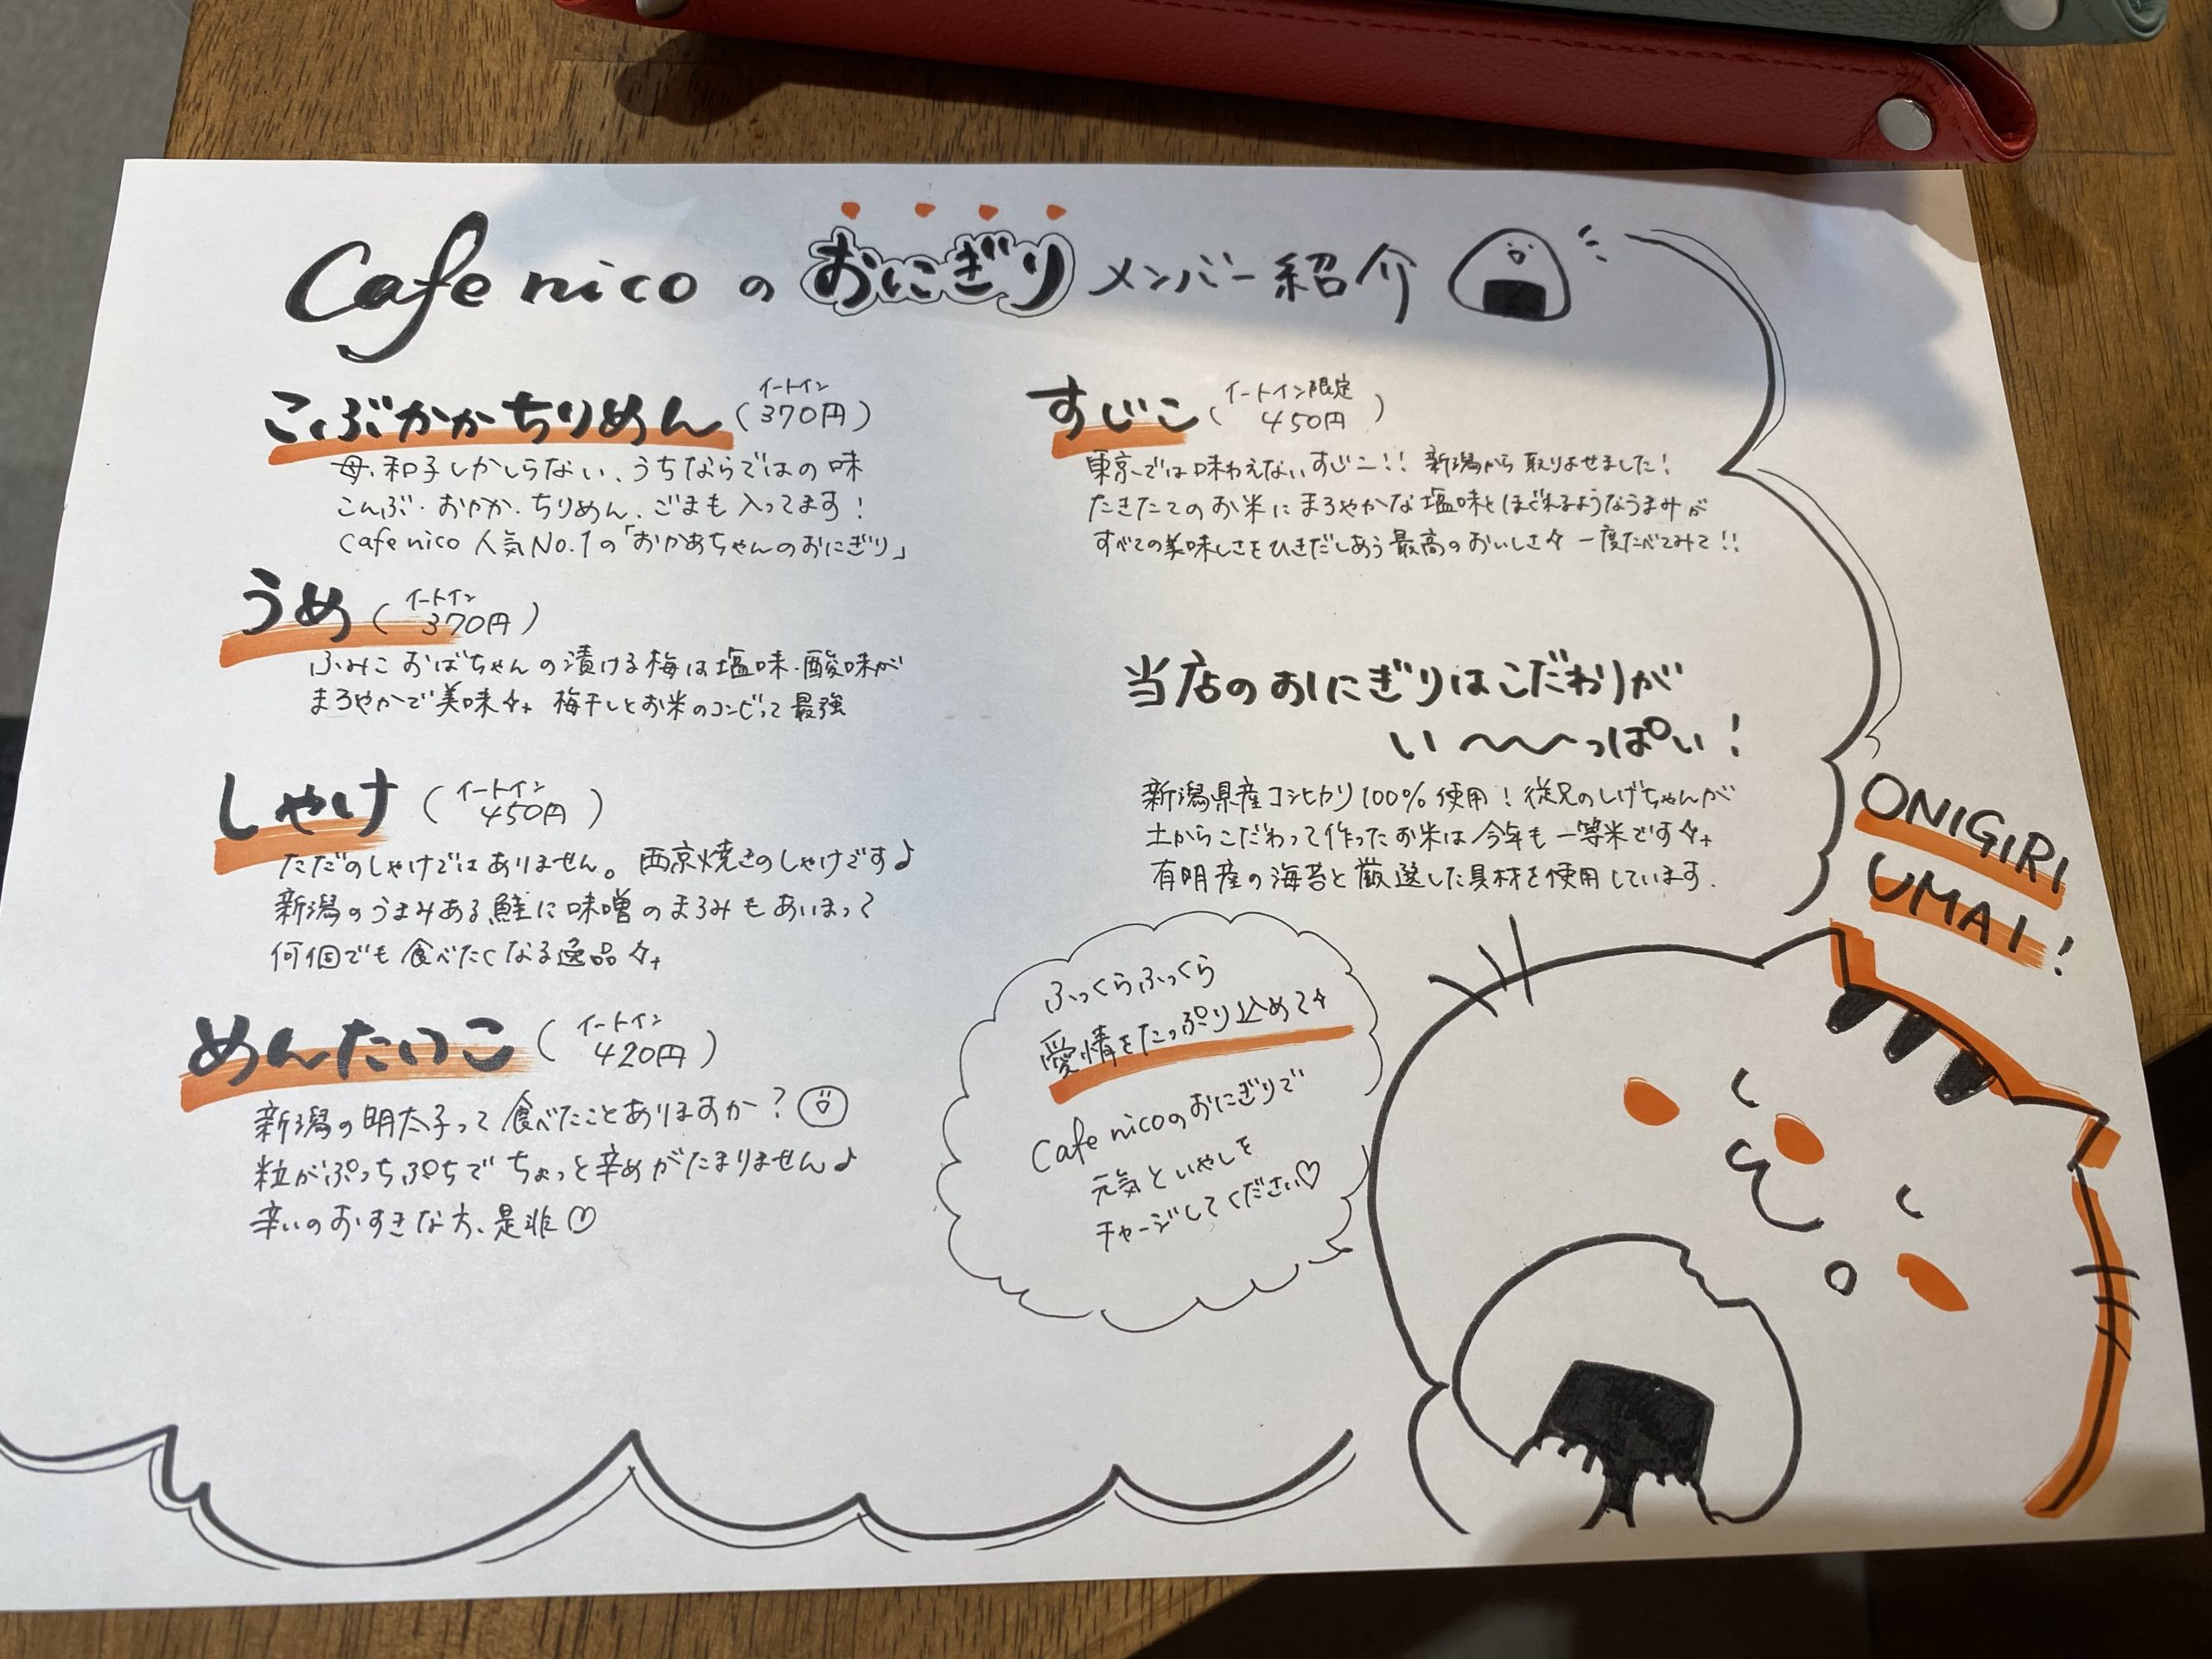 Cafe nico の おにぎり メンバー紹介
こぶかかちりめん (イートイン 370円)
母、和子しかしらない、うちならではの味
こんぶ・おかか・ちりめん、ごまも入ってます!
Cafe nico 人気No.1の「おかあちゃんのおにぎり」
うめ (イートイン 370円)
ふみこおばちゃんの漬ける梅は塩味・酸味が
まろやかで美味 梅干しとお米のコンビって最強
しゃけ (イートイン 450円)
ただのしゃけではありません。西京焼きのしゃけです♪
新潟のうまみある鮭に味噌のまろみもあいまって
何個でも食べたくなる逸品
めんたいこ (イートイン 420円)
新潟の明太子って食べたことありますか?
粒がぷっちぷちでちょっと辛めがたまりません♪
辛いのおすきな方、是非♡
すじこ (イートイン限定 450円)
東京では味わえないすじこ!! 新潟から取りよせました!
たきたてのお米にまろやかな塩味とほぐれるようなうまみが
すべての美味しさをひきだしあう最高のおいしさ 一度たべてみて!!
当店のおにぎりはこだわりが
い〜〜っぱい!
新潟県産コシヒカリ100%使用! 従兄のしげちゃんが
土からこだわって作ったお米は今年も一等米です
有明産の海苔と厳選した具材を使用しています.
ふっくらふっくら
愛情をたっぷり込めて
Cafe nicoのおにぎりで
元気といやしを
チャージしてください♡
ONIGIRI
UMAI!